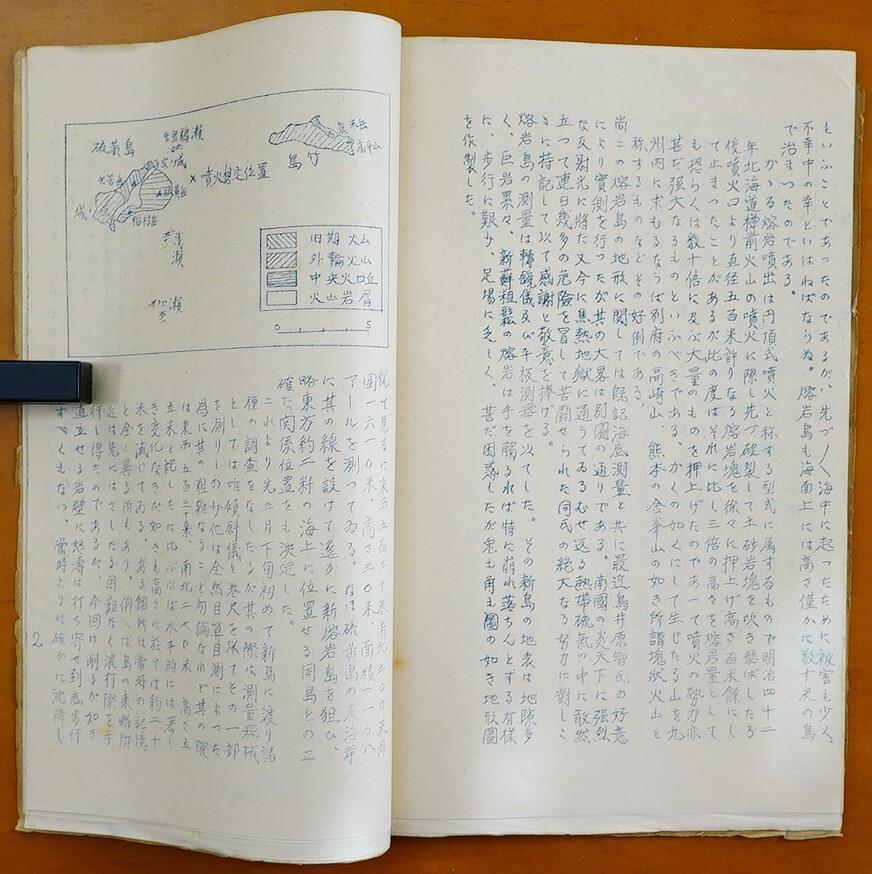 といふことであつたのであるが、先づ〱海中に起つたために被害も少く、
不幸中の幸といはねばならぬ。熔岩島も海面上には高さ僅かに数十米の島
で治まつたのである。
かゝる熔岩噴出は円頂式噴火と称する型式に属するもので明治四十二
年北海道樽前火山の噴火に際し先づ破裂して土砂岩塊を吹き飛ばしたる
後噴火口より直径五百米許りなる熔岩塊を徐々に押上げ高さ百米餘にし
て止まつたことがあるが此の度はそれに比し三倍の高さを熔岩量として
も恐らくは数十倍に及ぶ大量のものを押上げたのであつて噴火の勢力亦
甚だ強大なるものといふべきである。かくの如くにして生じたる山を九
州内に求むるならば別府の高崎山、熊本の金峯山の如き所謂塊狀火山と
称するものなどその好例である。
尚この熔岩島の地形に関しては既記海底測量と共に最近島井原智氏の好意
により實測を行つたが其の大畧は別圖の通りである。南國の炎天下に強烈
な反射光に將た又今に焦熱地獄に通うてゐるむせ返る熱帯硫氣の中に敢然
立つて連日幾多の危險を冒して苦闘せられた同氏の絶大なる努力に對しこ
ゝに特記して以て感謝と敬意を捧げる。
熔岩島の測量は轉鏡儀及び平板測器を以てした。その新島の地表は地隙多
く、巨岩累々、新鮮粗鬆の熔岩は手を觸るれば特に崩れ落ちんとする有様
に、歩行に艱み、足場に乏しく、甚だ困惑したが兎も角も圖の如き地形圖
を作製した。
硫黄島
竹島
×噴火想定位置
硫黄岳
稲村岳
浅瀬
旧期火山
外輪火山
中央火口丘
火山岩屑
0 5
就て見るに東西五百三十米南北二〇〇米周
囲一六一〇米、高さ三〇米、面積一一〇八
アールを測つてゐる。なほ硫黄島の東海岸
に其の線を設けて遥かに新熔岩島を狙ひ、
略東方約二粁の海上に位置せる同島との三
確な関係位置をも決定した。
これより先二月下旬初めて新島に渡り諸
種の調査をなしたるが其の際は測量器械
としては唯傾斜儀と巻尺を以てその一部
を測りしのみ他は全然目算目測によつた
為に其の粗雑なること勿論なれど其の際
は東西五百三十米、南北二七〇米、高さ五
五米と記したに比ぶれば水平的には著し
き変化なきが如きも高さに於ては約二十
米を減じてゐる。ある個所は當時の記憶
と全く異る所もあり、例へば島の東端附
近は先にはさしたる困難なく浪打際を歩
行し得たのであるが、今回は削るが如き
直立せる岩壁に怒濤は打ち寄せ到底歩行
すべくもない。當時よりは確かに沈降し
12